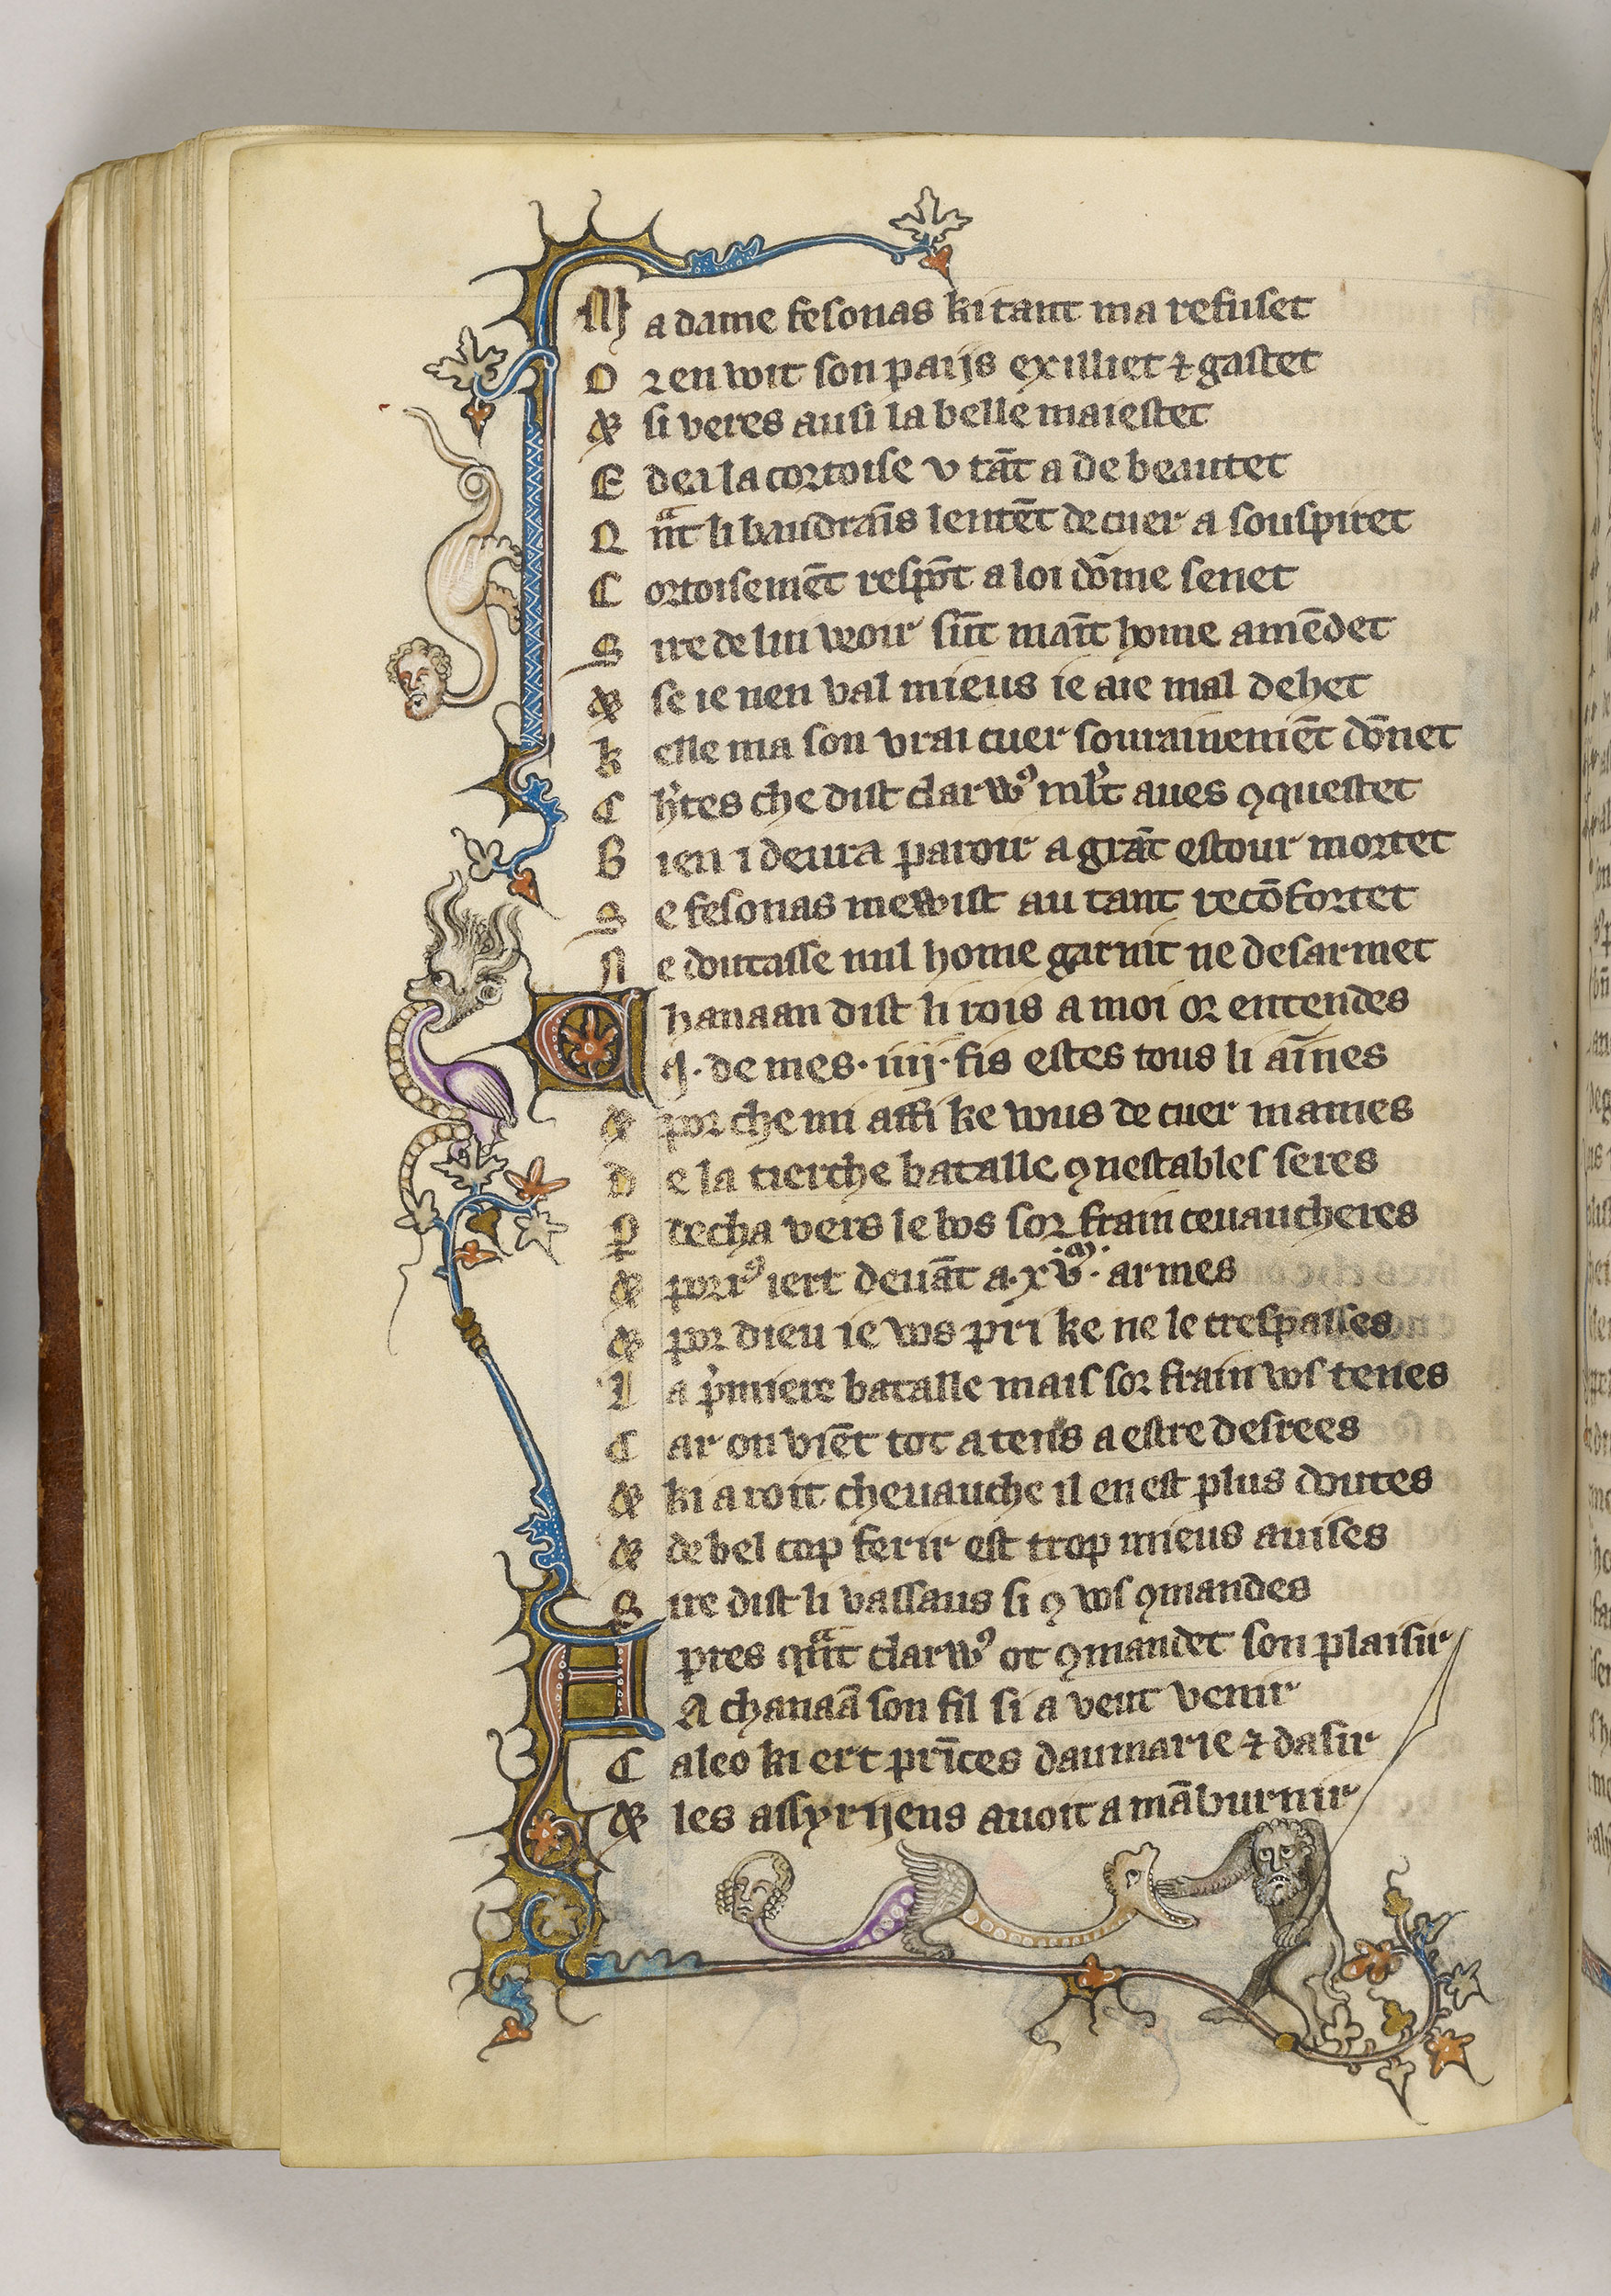 Ma dame fesonas ki tant ma refuset
Or en voit son païjs exilliet ⁊ gastet
⁊ si veres ausi la belle maiestet
Edea la cortoise v tāt a de beautet
Qnᵃt li baudrāīs lentēt de cuer a souspiret
Cortoisemēt respōt a loi dōme senet
Sire de lui veoir sūt māīt home amēdet
⁊ se ie nen val mieus ie aie mal dehet
kelle ma son vrai cuer sourainemēt dōnet
Ch'tes che dist clarvꝰ ml't aues ꝯquestet
Bien i deura paroir a grāt estour mortet
Se fesonas mewist au tant recōfortet
Ne doutasse nul home garnit ne desarmet
Chanaan dist li rois a moi or entendes
q · de mes · iiij · fis estes tous li aīnes
⁊ por che mi affi ke vous de cuer mames
de la tierche batalle ꝯnestables seres
Ꝑ decha vers le bos sor frain ceuaucheres
⁊ porrꝰ iert deuāt a · xv · ᵐ · armes
⁊ por dieu ie vos pri ke ne le trespasses
La p'miere batalle mais sor frain vos tenes
Car on viēt tot a tens a estre desrees
⁊ ki aroit cheuauche il en est plus doutes
⁊ de bel cop ferir est trop mieus auises
Sire dist li vassaus si ꝯ vos ꝯmandes
Apres qnᵃt clarvꝰ ot ꝯmandet son plaisir
A chanaā son fil si a veut venir
Caleo ki ert prīces daumarie ⁊ dasir
⁊ les assyrijens auoit a māburnir